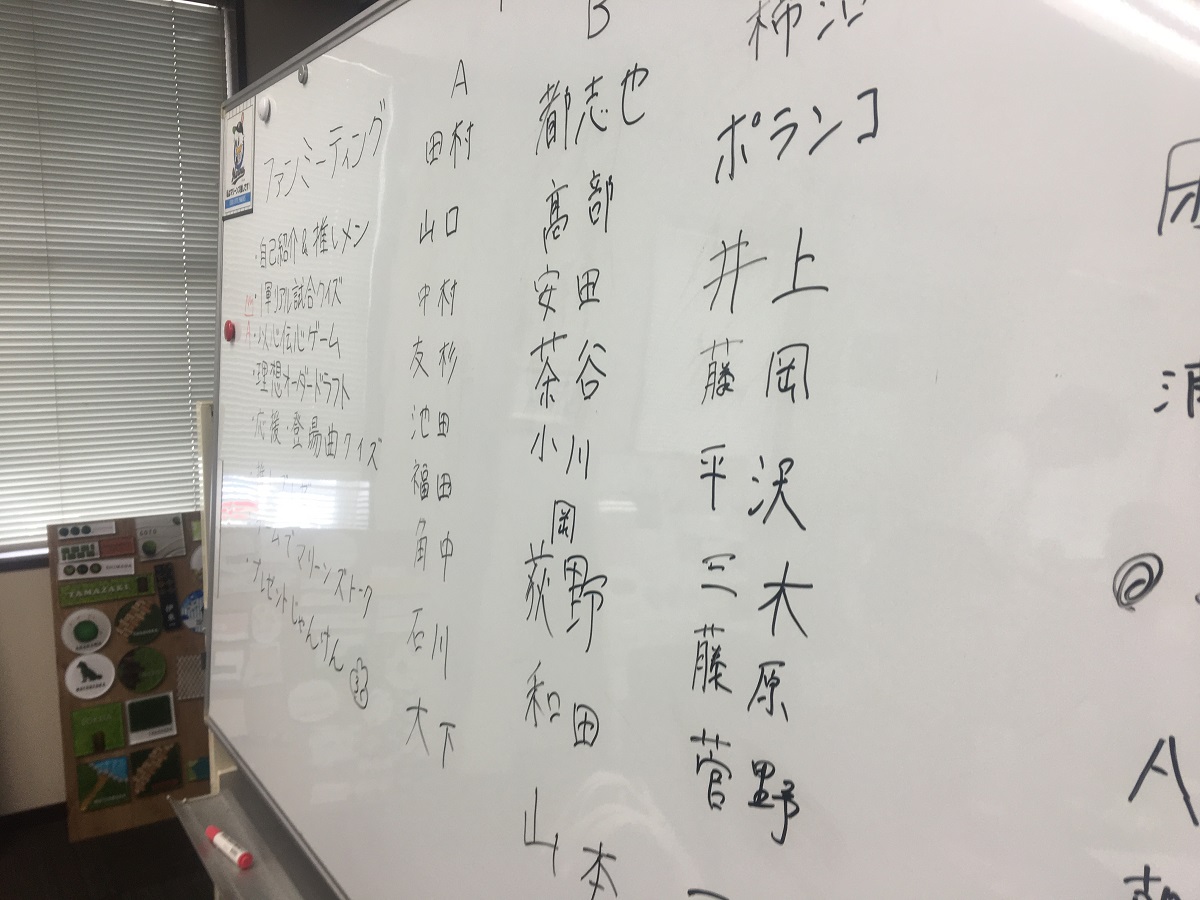 ファンミーティング
・自己紹介&推しメン
・1軍リアル試合クイズ
・以心伝心ゲーム
・理想オーダードラフト
・応援・登場曲クイズ
マリーンズトーク
・プレゼントじゃんけん
A
田村
山口
中村
友杉
池田
福田
角中
石川
大下
B
都志也
髙部
安田
茶谷
小川
岡
荻野
和田
山本
柿沼
ポランコ
井上
藤岡
平沢
三木
藤原
菅野
A